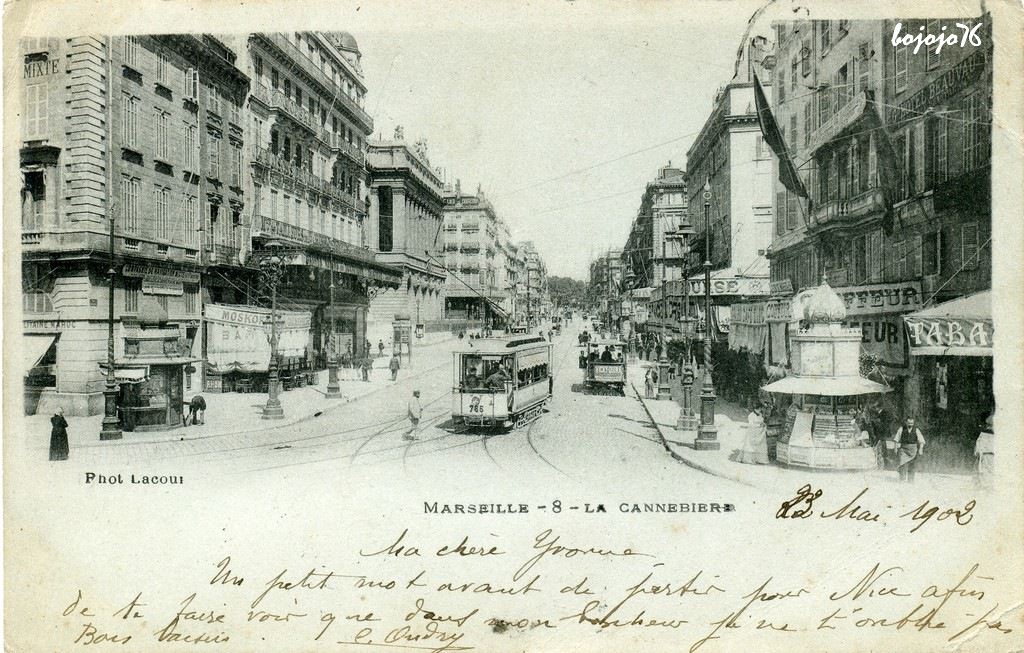 bojojo76
MIXTE
BEAUVAU
MOSKO
BAR
COIFFEUR
TABA
766
Phot Lacour
MARSEILLE - 8 - LA CANNEBIERE
23 Mai 1902
Ma chère Yvonne
Un petit mot avant de partir pour Nice afin
de te faire voir que dans mon bonheur je ne t'oublie pas
Bons baisers. E. Oudry